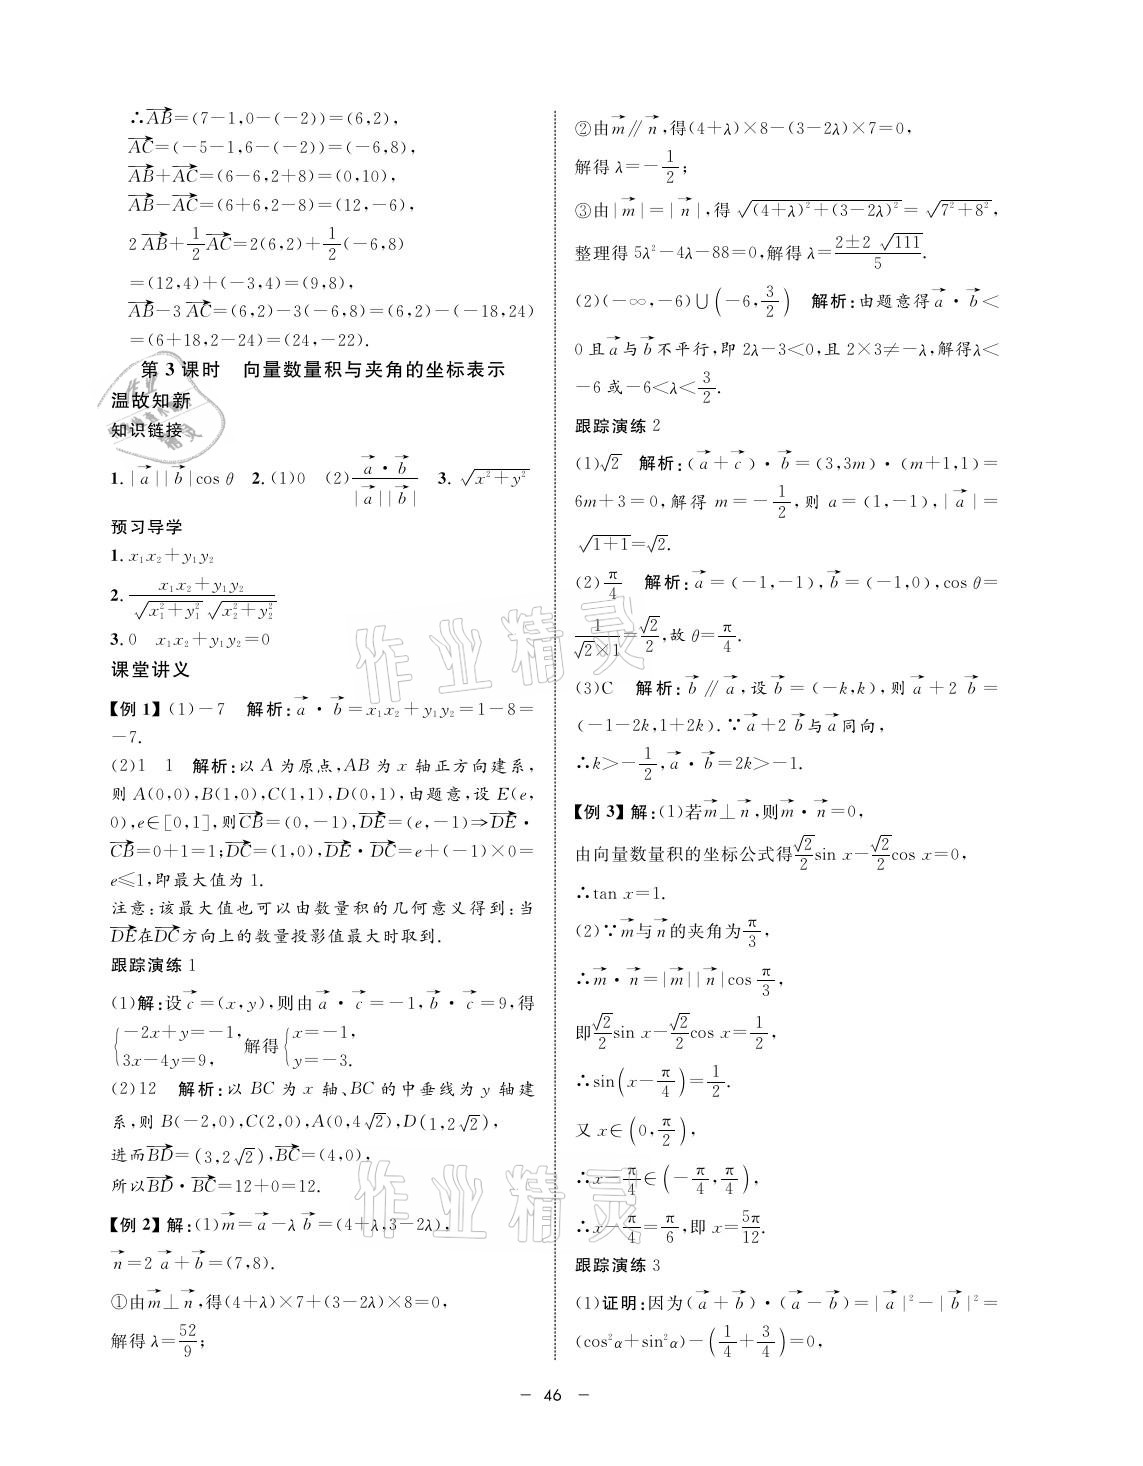 ∴AB→=(7-1,0-(-2))=(6,2),
AC→=(-5-1,6-(-2))=(-6,8),
AB→+AC→=(6-6,2+8)=(0,10),
AB→-AC→=(6+6,2-8)=(12,-6),
2AB→+1/2 AC→=2(6,2)+1/2(-6,8)
=(12,4)+(-3,4)=(9,8),
AB→-3AC→=(6,2)-3(-6,8)=(6,2)-(-18,24)
=(6+18,2-24)=(24,-22).
第3课时 向量数量积与夹角的坐标表示
温故知新
知识链接
1.|a→||b→|cos θ 2.(1)0 (2)(a→·b→)/(|a→||b→|) 3.√(x²+y²)
预习导学
1.x₁x₂+y₁y₂
2.(x₁x₂+y₁y₂)/(√(x₁²+y₁²)√(x₂²+y₂²))
3.0 x₁x₂+y₁y₂=0
课堂讲义
【例1】(1)-7 解析:a→·b→=x₁x₂+y₁y₂=1-8=
-7.
(2)1 1 解析:以A为原点,AB为x轴正方向建系,
则A(0,0),B(1,0),C(1,1),D(0,1),由题意,设E(e,
0),e∈[0,1],则CB→=(0,-1),DE→=(e,-1)⇒DE→·
CB→=0+1=1;DC→=(1,0),DE→·DC→=e+(-1)×0=
e≤1,即最大值为1.
注意:该最大值也可以由数量积的几何意义得到:当
DE→在DC→方向上的数量投影值最大时取到.
跟踪演练1
(1)解:设c→=(x,y),则由a→·c→=-1,b→·c→=9,得
{-2x+y=-1, 3x-4y=9, 解得{x=-1, y=-3.
(2)12 解析:以BC为x轴、BC的中垂线为y轴建
系,则B(-2,0),C(2,0),A(0,4√2),D(1,2√2),
进而BD→=(3,2√2),BC→=(4,0),
所以BD→·BC→=12+0=12.
【例2】解:(1)m→=a→-λb→=(4+λ,3-2λ),
n→=2a→+b→=(7,8).
①由m→⊥n→,得(4+λ)×7+(3-2λ)×8=0,
解得λ=52/9;
②由m→∥n→,得(4+λ)×8-(3-2λ)×7=0,
解得λ=-1/2;
③由|m→|=|n→|,得√((4+λ)²+(3-2λ)²)=√(7²+8²),
整理得5λ²-4λ-88=0,解得λ=(2±2√111)/5.
(2)(-∞,-6)∪(-6,3/2) 解析:由题意得a→·b→<
0且a→与b→不平行,即2λ-3<0,且2×3≠-λ,解得λ<
-6或-6<λ<3/2.
跟踪演练2
(1)√2 解析:(a→+c→)·b→=(3,3m)·(m+1,1)=
6m+3=0,解得m=-1/2,则a=(1,-1),|a→|=
√(1+1)=√2.
(2)π/4 解析:a→=(-1,-1),b→=(-1,0),cos θ=
1/(√2×1)=√2/2,故θ=π/4.
(3)C 解析:b→∥a→,设b→=(-k,k),则a→+2b→=
(-1-2k,1+2k).∵a→+2b→与a→同向,
∴k>-1/2,a→·b→=2k>-1.
【例3】解:(1)若m→⊥n→,则m→·n→=0,
由向量数量积的坐标公式得√2/2 sin x-√2/2 cos x=0,
∴tan x=1.
(2)∵m→与n→的夹角为π/3,
∴m→·n→=|m→||n→|cos π/3,
即√2/2 sin x-√2/2 cos x=1/2,
∴sin(x-π/4)=1/2.
又x∈(0,π/2),
∴x-π/4∈(-π/4,π/4),
∴x-π/4=π/6,即x=5π/12.
跟踪演练3
(1)证明:因为(a→+b→)·(a→-b→)=|a→|²-|b→|²=
(cos²α+sin²α)-(1/4+3/4)=0,
- 46 -
作业精灵
作业精灵